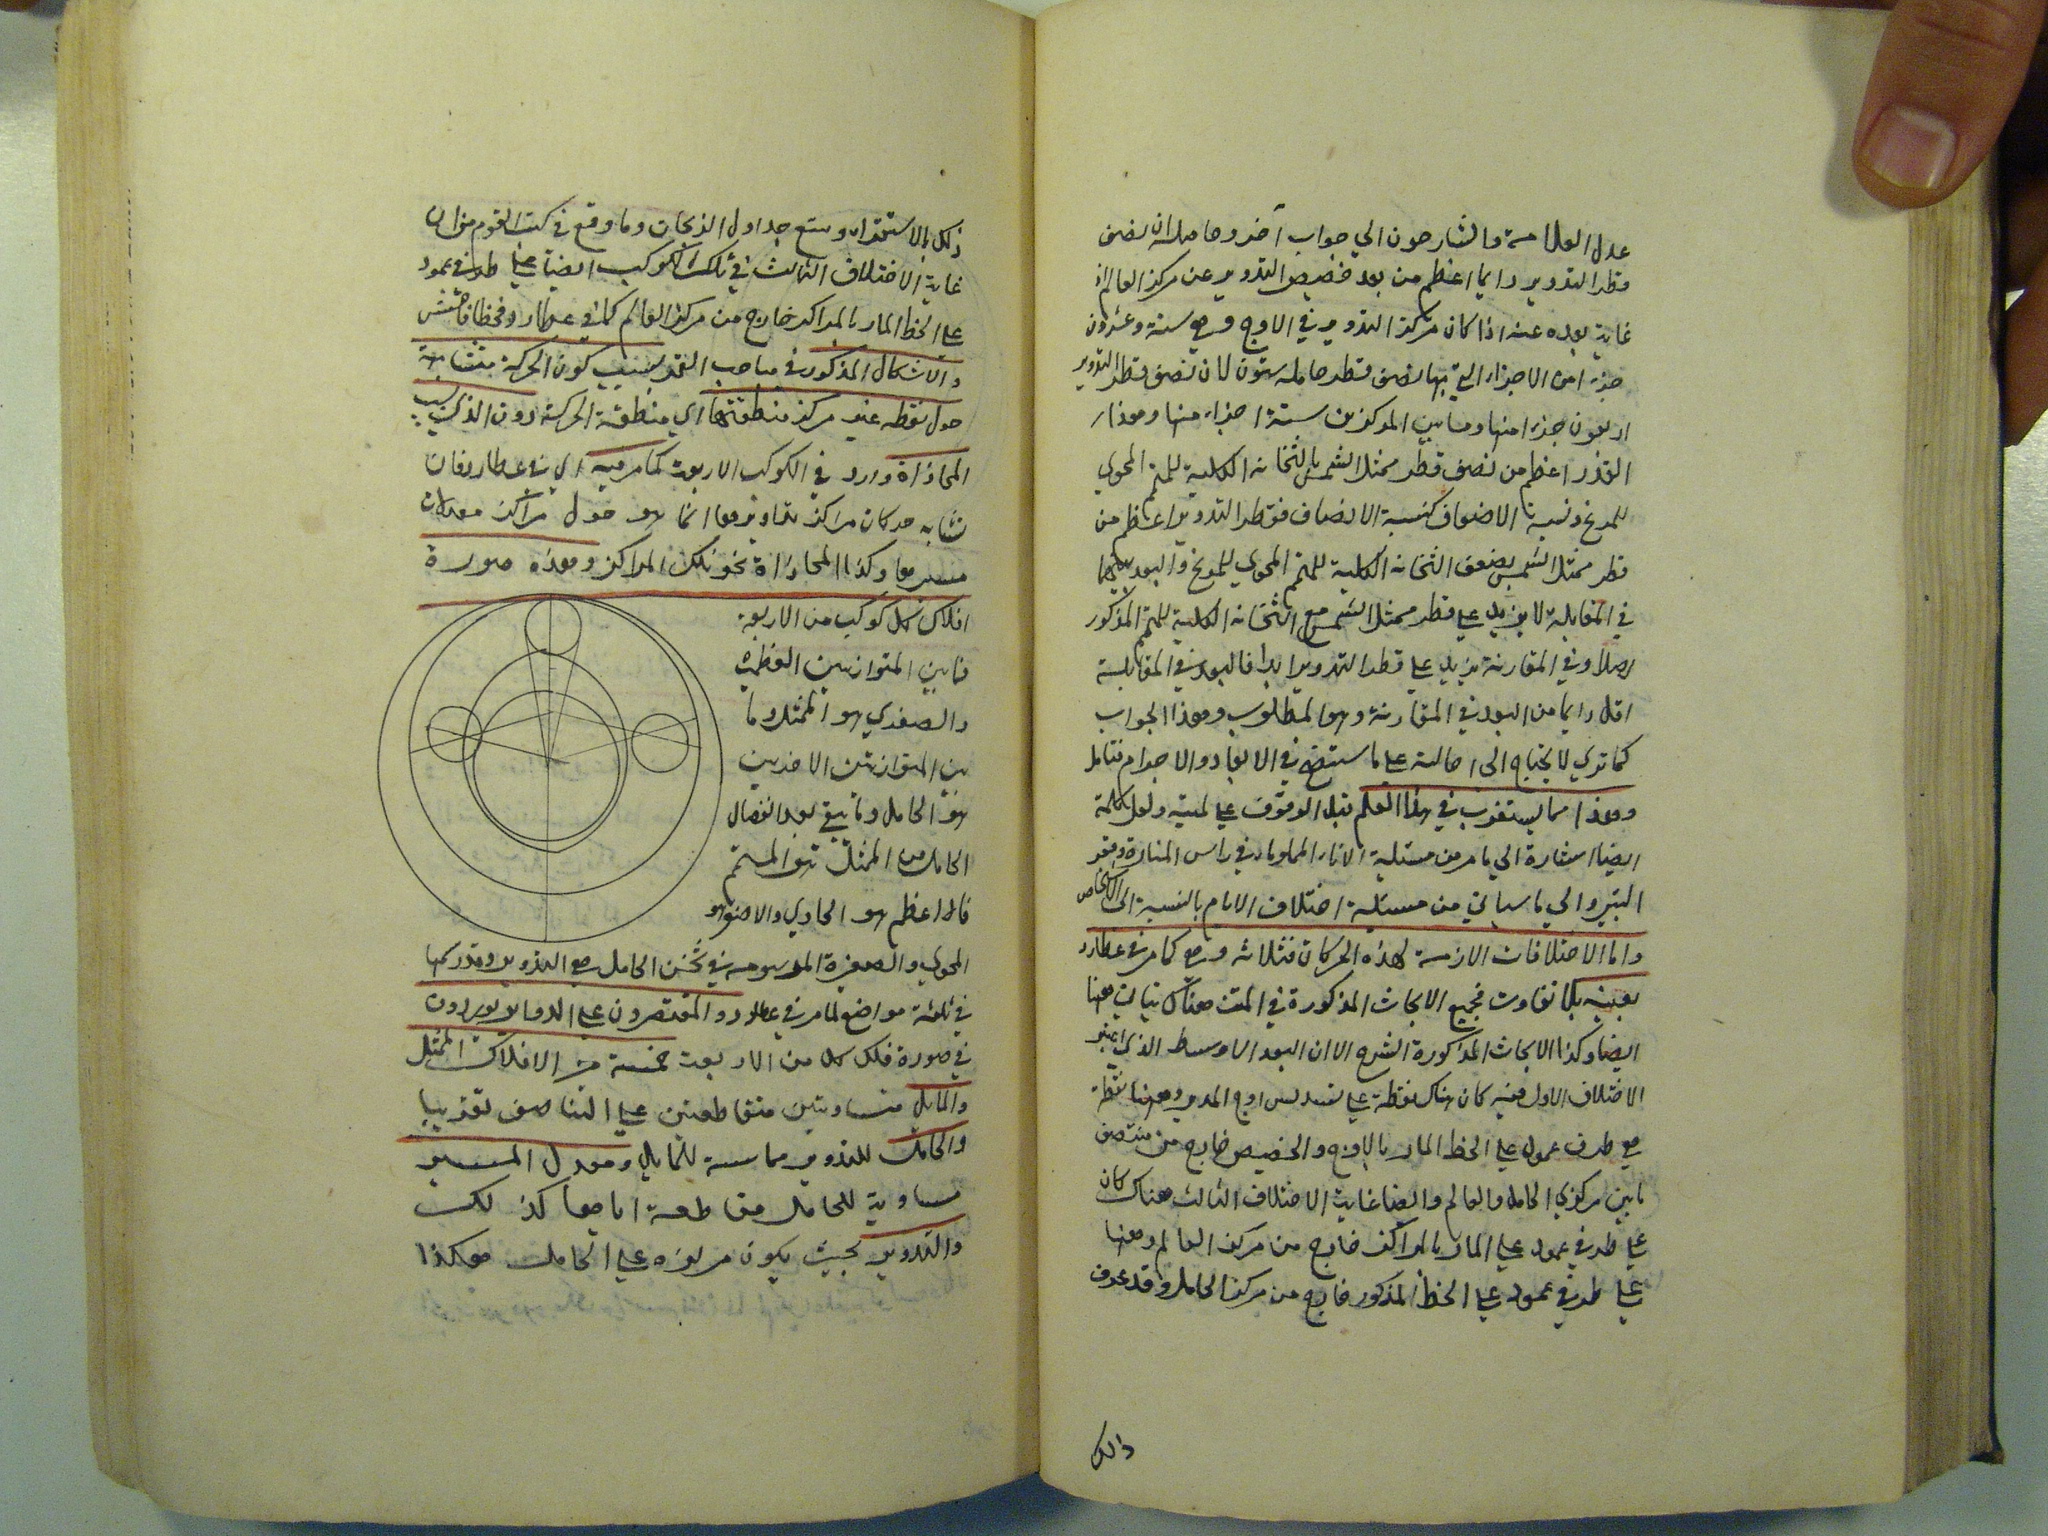 عدل العلامة والشارحون الى جواب آخر وحاصله ان نصف
قطر التدوير دايما اعظم من بعد حضيض التدوير عن مركز العالم اذ
غاية بعده عنه اذا كان مركز التدوير في الاوج وهي ستة وعشرون
جزء من الاجزاء التي بها نصف قطر حامله ستون لان نصف قطر التدوير
اربعون جزء منها وما بين المركزين ستة اجزاء منها وهذا
القدر اعظم من نصف قطر ممثل الشمس بالثخانة الكلية للمتمم المحوي
للمريخ ونسبة الاضعاف كنسبة الانصاف فقطر التدوير اعظم من
قطر ممثل الشمس بضعف الثخانة الكلية للمتمم المحوي للمريخ والبعد بينهما
في المقابلة لا يزيد على قطر ممثل الشمس مع الثخانة الكلية للمتمم المذكور
اصلا وفي المقارنة يزيد على قطر التدوير ابدا فالبعد في المقابلة
اقل دايما من البعد في المقارنة وهو المطلوب وهذا الجواب
كما ترى لا يحتاج الى احالته على ما سيتضح في الابعاد والاجرام فتامل
وهذا مما يستغرب في هذا العلم قبل الوقوف على لميته ولعل كلمة
ايضا اشارة الى ما مر من مسئلة الاناء المملو ماء في راس المنارة وقعر
البئر والى ما سياتي من مسئلة اختلاف الايام بالنسبة الى الاشخاص
واما الاختلافات اللازمة لهذه الحركات فثلاثة وهي كما مر في عطارد
بعينه بلا تفاوت فجميع الابحاث المذكورة في المتن هناك تتاتى هنا
ايضا وكذا الابحاث المذكورة الشرح الا ان البعد الاوسط الذي اعتبر
الاختلاف الاول فيه كان هناك نقطة على تسديس اوج المدير وههنا نقطة
هي طرف عمود على الخط المار بالاوج والحضيض خارج من منتصف
ما بين مركزي الحامل والعالم وايضا غاية الاختلاف الثالث هناك كان
على طرفي عمود على المار بالمراكز خارج من مركز العالم وههنا
على طرفي عمود على الخط المذكور خارج من مركز الحامل وقد عرف
ذلك
ذلك بالاستقراء وتتبع جداول الزيجات وما وقع في كتب القوم من ان
غاية الاختلاف الثالث في تلك الكواكب ايضا على طرفي عمود
على الخط المار بالمراكز خارج من مركز العالم كما في عطارد فخطا فاحش
والاشكال المذكور في مباحث القمر بسبب كون الحركة متشابهة
حول نقطة غير مركز منطقتها اي منطقة الحركة دون الذي بسبب
المحاذاة وارد في الكواكب الاربعة كما مر فيه اي في عطارد فان
تشابه حركات مراكز تداويرها انما هو حول مراكز معدلات
مسيرها وكذا المحاذاة نحو تلك المراكز وهذه صورة
افلاك كل كوكب من الاربعة
فما بين المتوازيتين العظمى
والصغرى هو الممثل وما
بين المتوازيتين الاخريين
هو الحامل وما بقي بعد انفصال
الحامل من الممثل هو المتمم
فالاعظم هو الحاوي والاصغر هو
المحوي والصغيرة المرسومة في ثخن الحامل هي التدوير وقد رسمها
في ثلثة مواضع لما مر في عطارد والمقتصرون على الدواير يوردون
في صورة فلك كل من الاربعة خمسة من الافلاك الممثل
والمايل متساويتين متقاطعتين على التناصف تقريبا
والحامل للتدوير مماسة للمايل ومعدل المسير
مساوية للحامل متقاطعة اياها كذلك
والتدوير بحيث يكون مركزه على الحامل هكذا